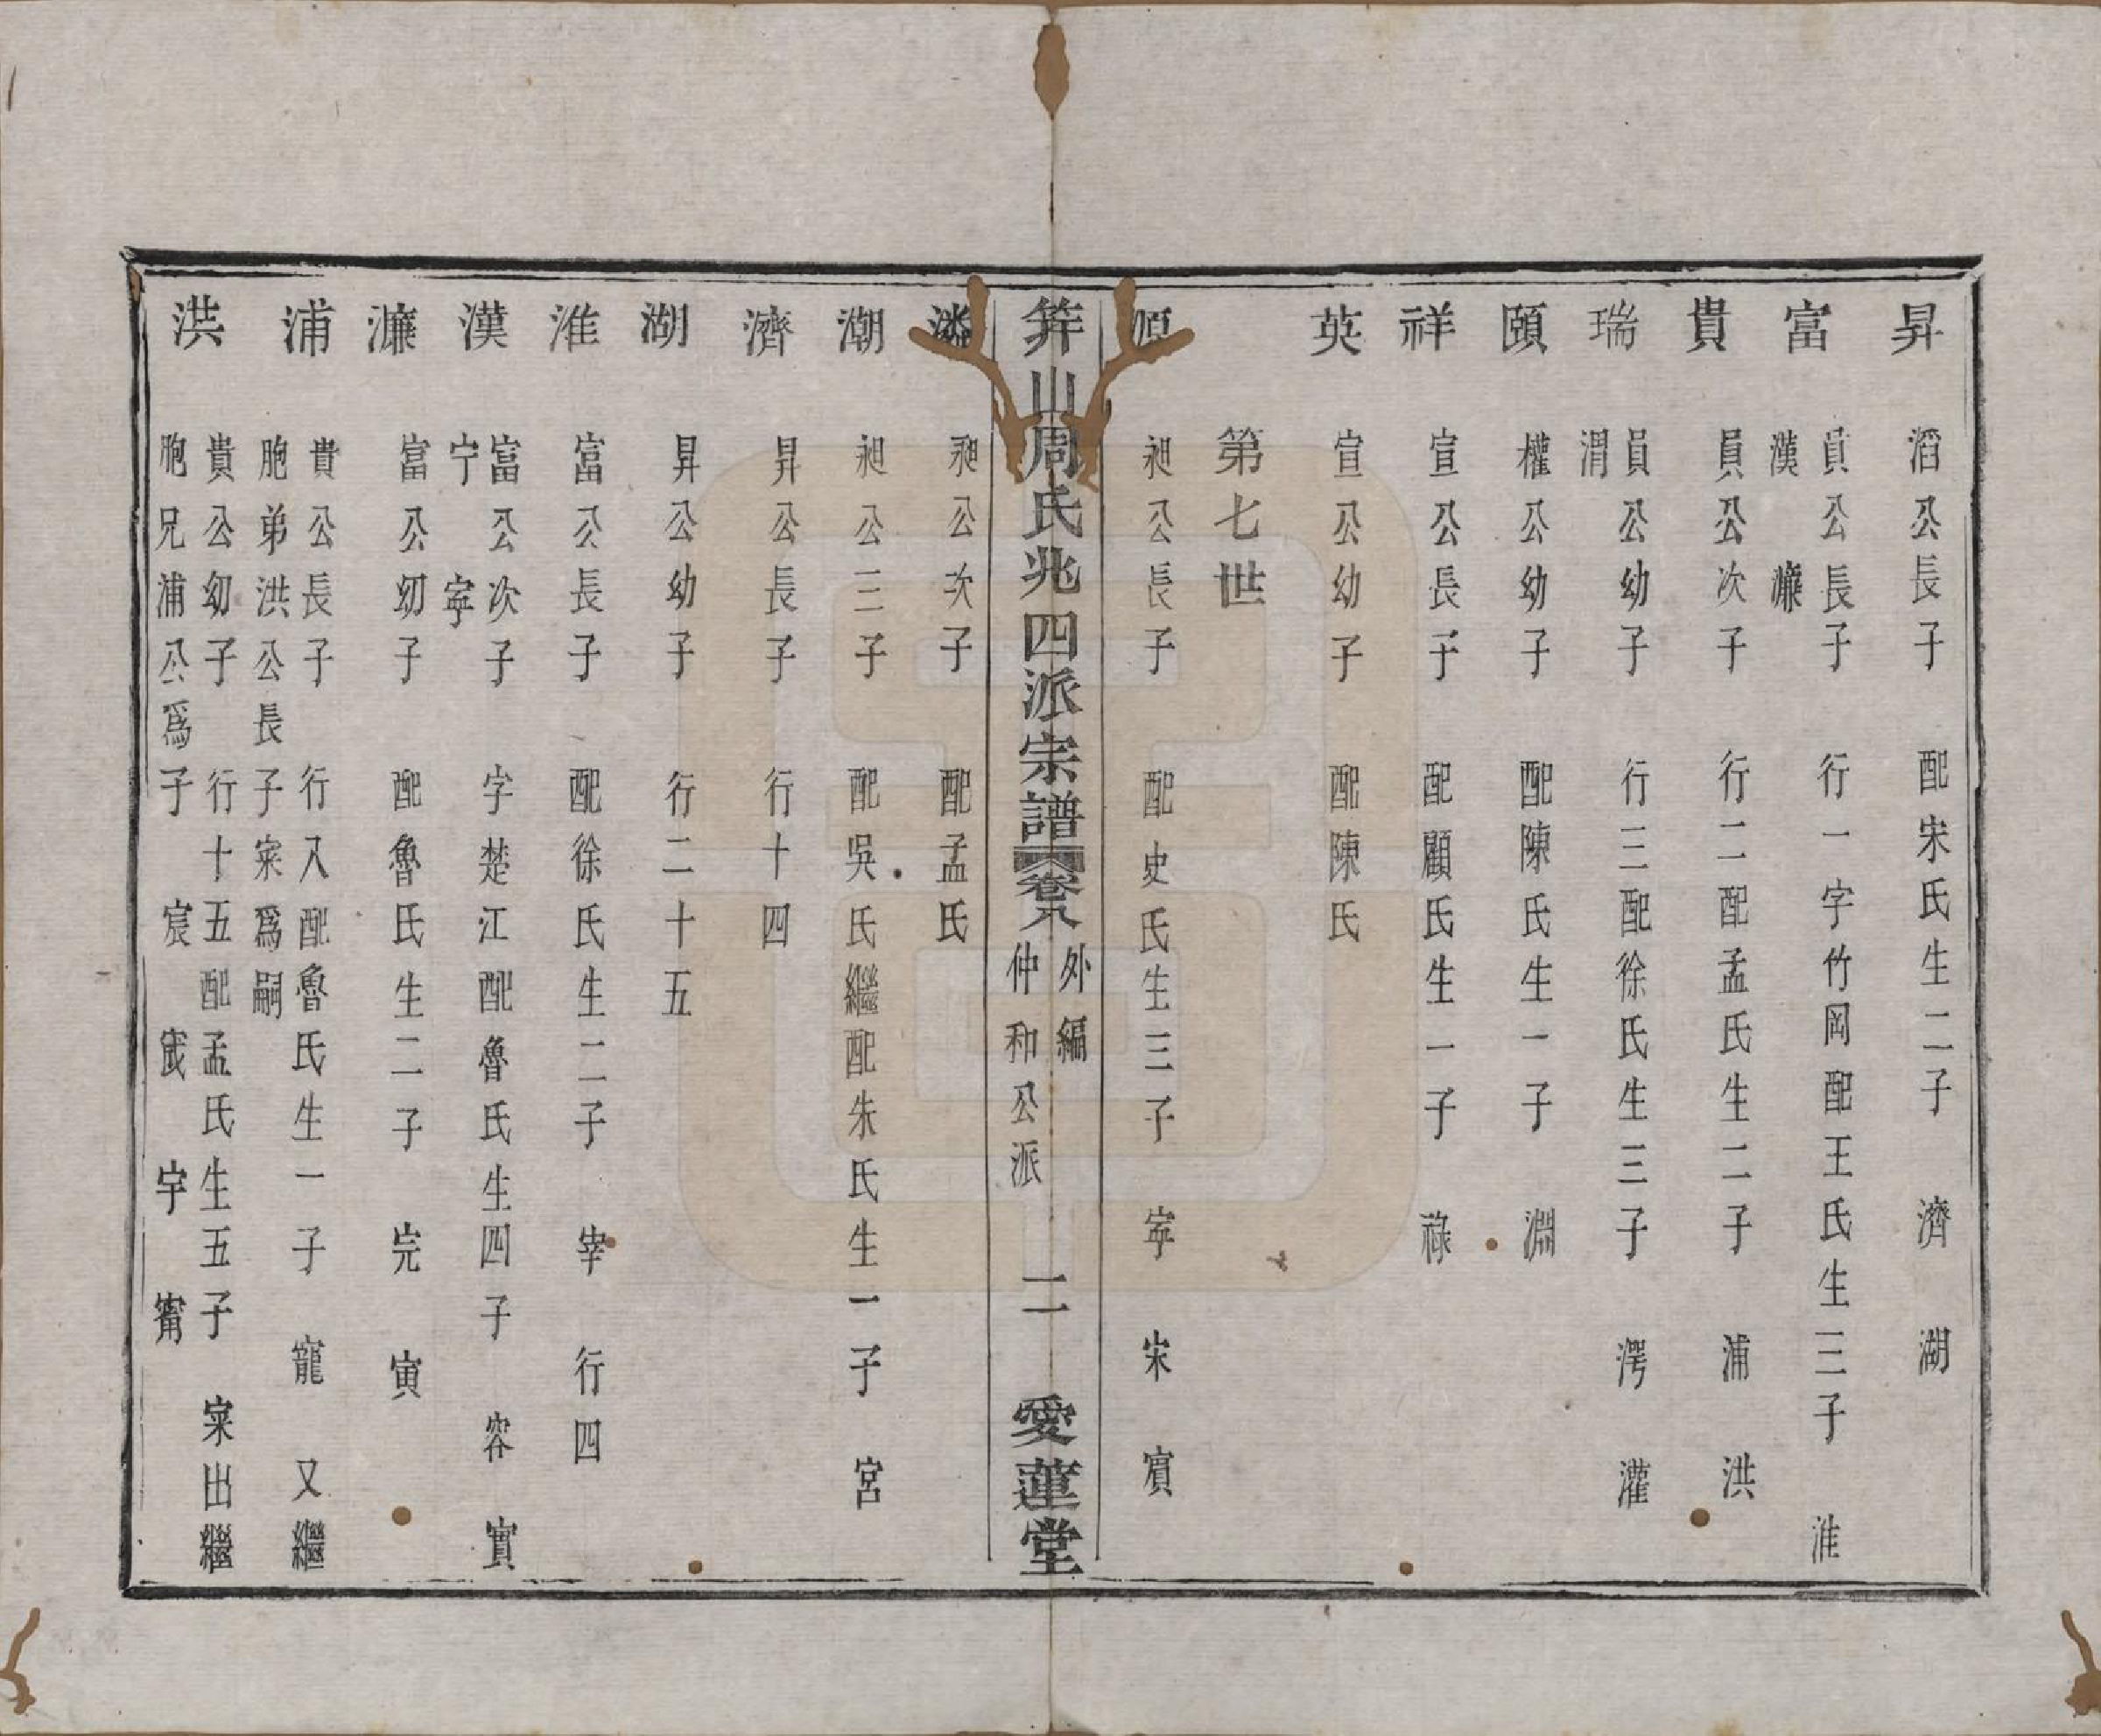 昇 滔公長子 配宋氏生二子 濟 湖
富 員公長子 行一字竹岡配王氏生三子 淮
漢 濂
貴 員公次子 行二配孟氏生二子 浦 洪
瑞 員公幼子 行三配徐氏生三子 澪 灌
渭
頤 權公幼子 配陳氏生一子 淵
祥 宣公長子 配顧氏生一子 祿
英 宣公幼子 配陳氏
第七世
源 昶公長子 配史氏生三子 寧 宋 賓
筓山周氏兆四派宗譜 卷八 外編 仲和公派 二 愛蓮堂
昶公次子 配孟氏
潮 昶公三子 配吳氏繼配朱氏生一子 宮
濟 昇公長子 行十四
湖 昇公幼子 行二十五
淮 富公長子 配徐氏生二子 宰 行四
漢 富公次子 字楚江配魯氏生四子 容 實
宁 寧
濂 富公幼子 配魯氏生二子 完 寅
浦 貴公長子 行八配魯氏生一子 寵 又繼
胞弟洪公長子寀爲嗣
洪 貴公幼子 行十五配孟氏生五子 寀出繼
胞兄浦公爲子 宸 宬 宇 甯